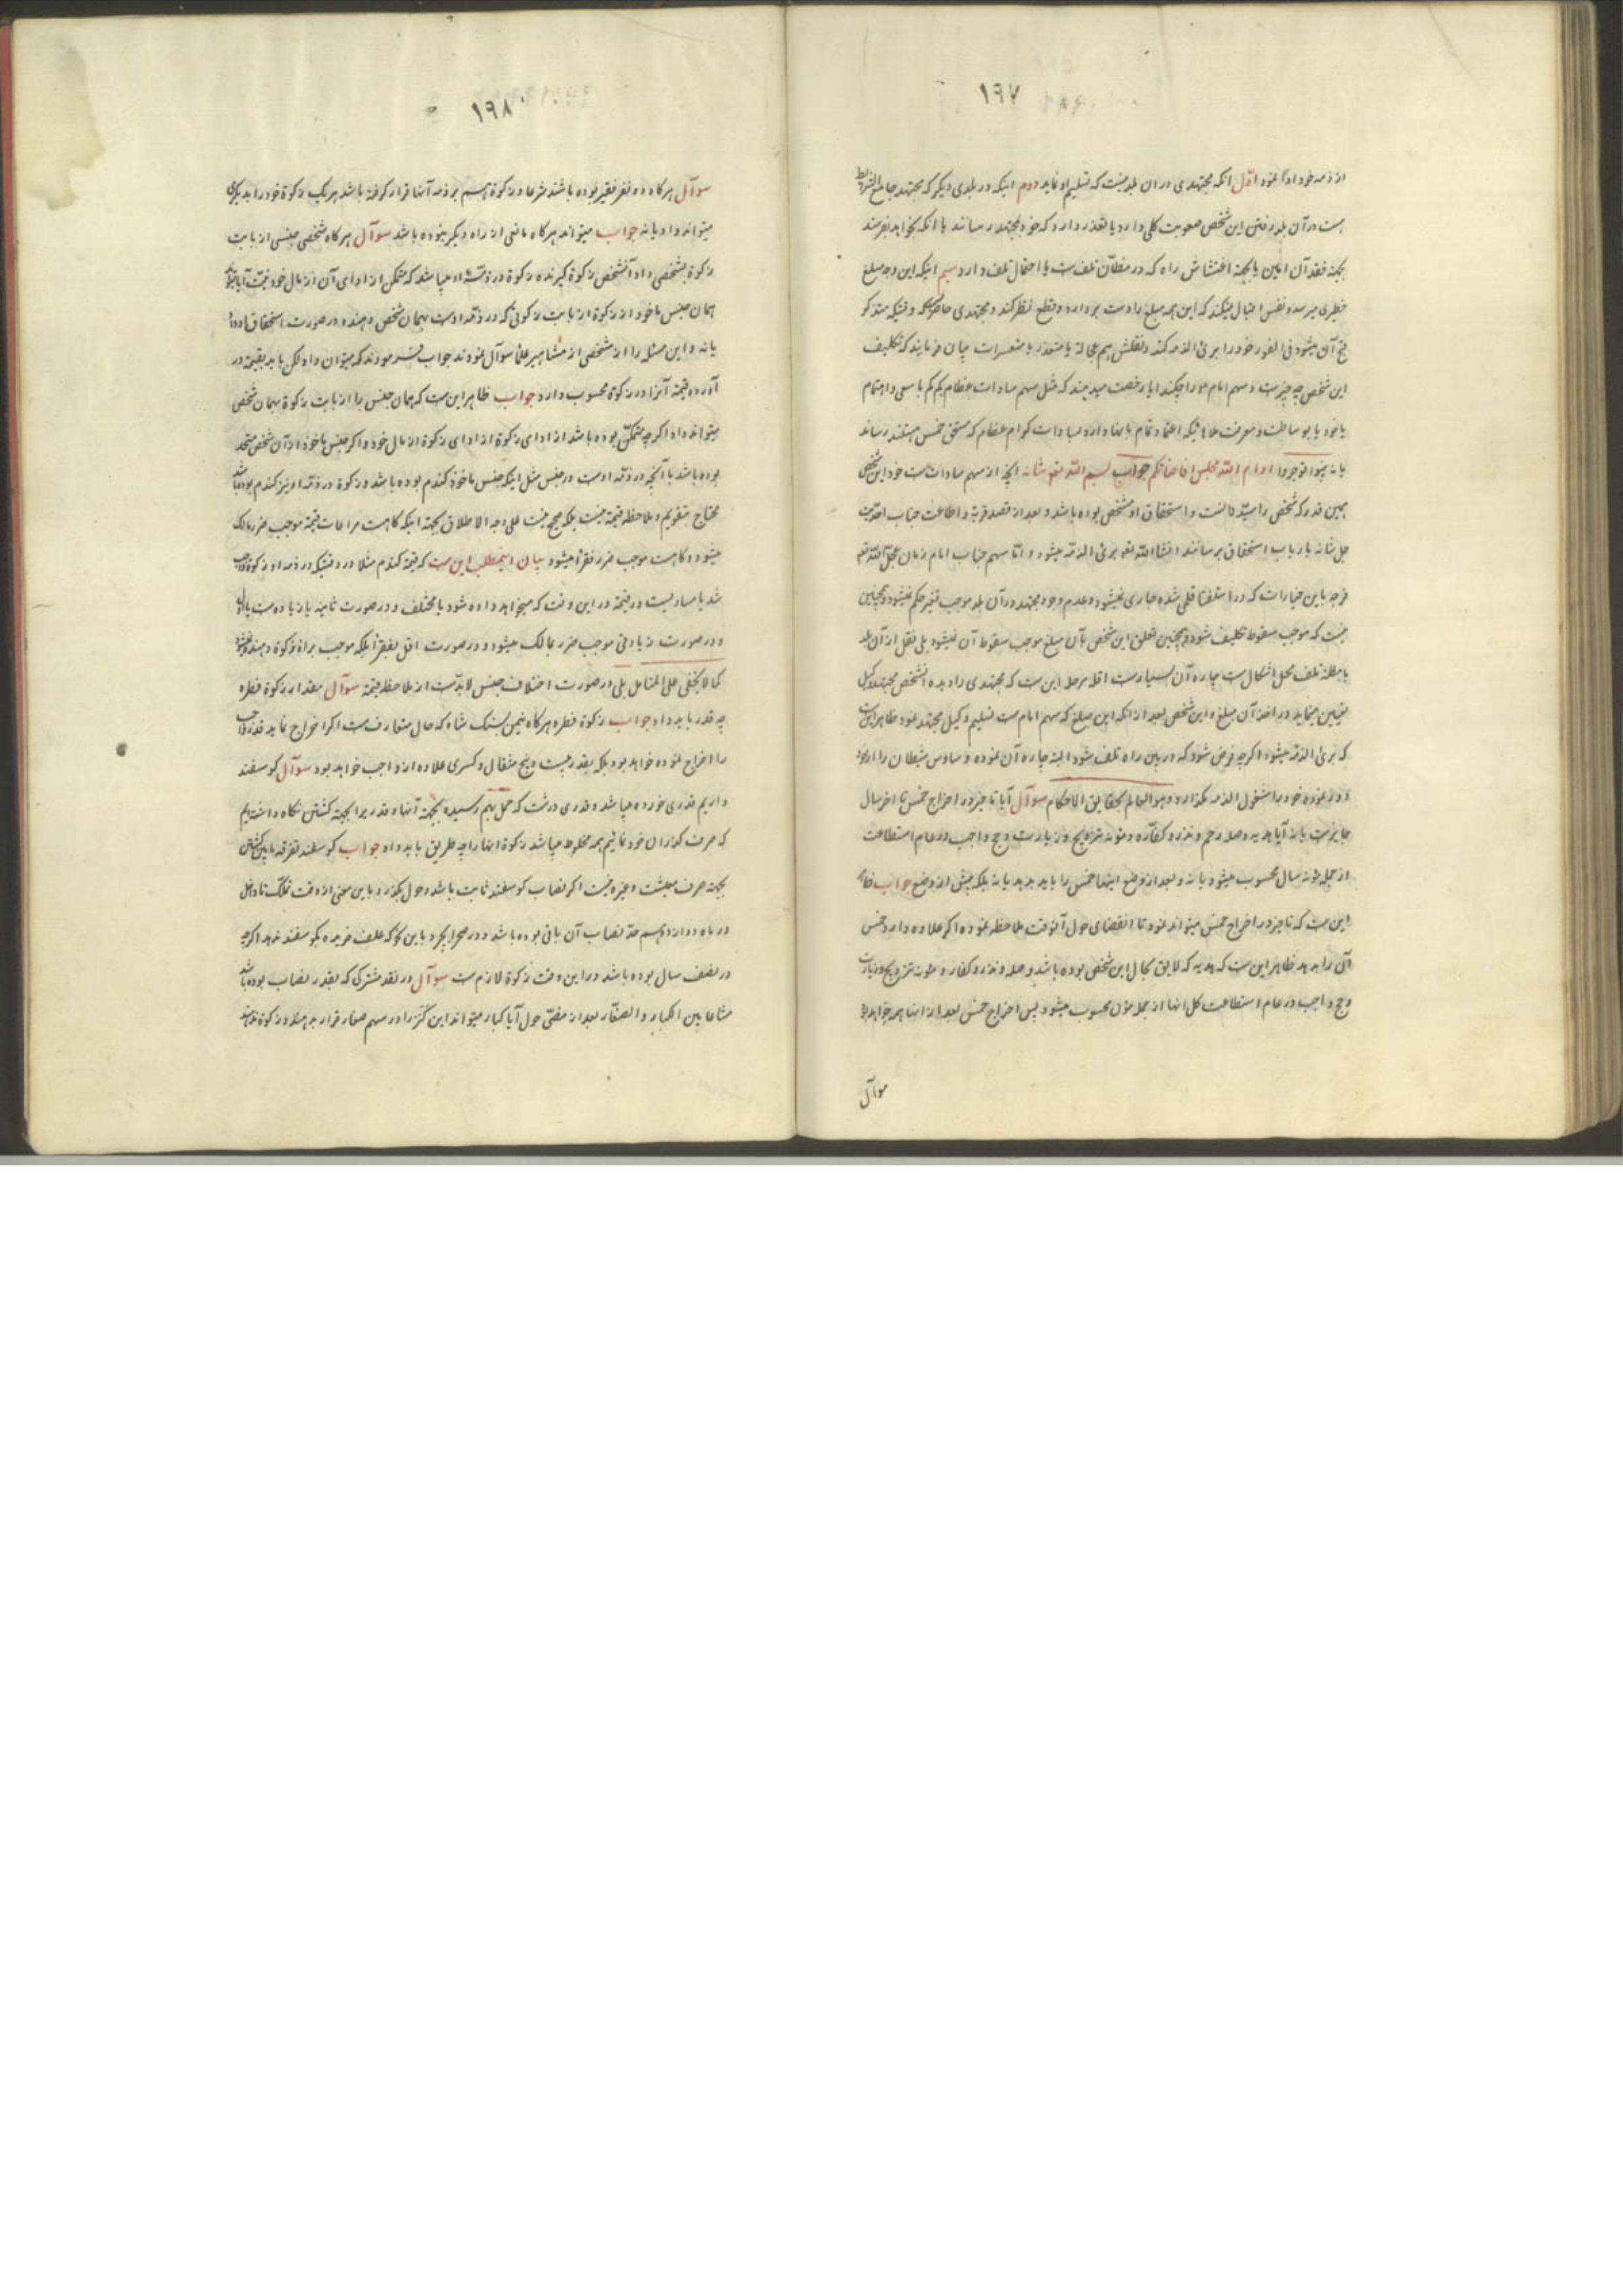 ١٩٧
از ذمه خود ادا نمود اوّل انکه مجتهدی دران بلد نیست که تسلیم او نماید دوم اینکه در بلدی دیگر که مجتهد جامع الشرایط
هست در آن بلد رفتن این شخص صعوبت کلی دارد یا تعذر دارد که خود بمجتهد رساند یا انکه بخواهد بفرستد
بجهة فقد آن امین یا بجهة اغتشاش راه که در مظانّ تلف است یا احتمال تلف دارد سیم اینکه این وجه مبلغ
خطیری میرسد و نفس اقبال نمیکند که این همه مبلغ را دست بردارد و قطع نظر کند و مجتهدی حاضر و وقتیکه متذکر
آن میشود فی الفور خود را برئ الذمه کند و نقلش هم عجالة یا متعذر یا متعسرات بیان فرمایند که تکلیف
این شخص چه چیز است و سهم امام را چکند ایا رخصت میدهند که مثل سهم سادات عظام کم کم با سعی و اهتمام
یا خود یا بوساطت و معرفت علمائیکه اعتماد تمام بانها دارد بسادات کرام عظام که مستحق خمس هستند رساند
یا نه بینوا توجروا ادام اللّه مجلس افاضاتکم جواب بسم اللّه تعه شانه انچه از سهم سادات است خود این شخص
همین قدر که شخص را سیّد دانست و استحقاق او مشخص بوده باشد و بعد از قصد قربة و اطاعت جناب احدیت
جل شانه بارباب استحقاق برسانند انشاء اللّه تعه برئ الذمّه میشود و امّا سهم جناب امام زمان عجّل اللّه تعه
فرجه باین خیارات که در استفتا قلمی شده جاری نمیشود و عدم وجود مجتهد در آن بلد موجب تغیر حکم نمیشود و همچنین
نیست که موجب سقوط تکلیف شود و همچنین تعلق این شخص بآن مبلغ موجب سقوط آن نمیشود بلی نقل از آن بلد
با مظنه تلف محل اشکال است چاره آن بسیار است اقلا مرحله این ست که مجتهدی را دیده انشخص مجتهد وکیل
تعیین مینماید در اخذ آن مبلغ و این شخص بعد از انکه این مبلغ که سهم امام ست تسلیم وکیل مجتهد نمود ظاهر این است
که برئ الذمّه میشود اگر چه فرض شود که در بین راه تلف شود البته چاره آن نموده وساوس شیطان را از خود
دور نموده خود را مشغول الذمه نگذارد و هو العالم بحقایق الاحکام سوآل آیا تاخیر در اخراج خمس تا اخر سال
جایز ست یا نه آیا هدیه و صله رحم و نذر و کفّاره و مؤنه تزویج و زیارت و حج واجب در عام استطاعت
از جمله مؤنه سال محسوب میشود یا نه و بعد از وضع اینها خمس را باید بدهد یا نه بلکه پیش از وضع جواب ظاهر
این ست که تاخیر در اخراج خمس میتواند نمود تا انقضای حول آنوقت ملاحظه نموده اگر علاوه دارد خمس
آن را بدهد ظاهر این ست که هدیه که لایق بحال این شخص بوده باشد و صله و نذر و کفاره و مؤنه تزویج و زیارت
و حج واجب در عام استطاعت کل انها از جمله مؤن محسوب میشود پس اخراج خمس بعد از اینها همه خواهد بود
سوآل
١٩٨
سوآل هرگاه دو نفر فقیر بوده باشند شرعا و زکوة هم بر ذمه آنها قرار گرفته باشد هر یک زکوة خود را بدیگری
میتواند داد یا نه جواب میتواند هرگاه مانعی از راه دیگر نبوده باشد سوآل هرگاه شخصی جنسی از بابت
زکوة بشخصی داد آنشخص زکوة گیرنده زکوة در ذمّه او میباشد که متمکن از ادای آن از مال خود نیست آیا میتواند
همان جنس ماخوذ از زکوة از بابت زکوتی که در ذمّه اوست بهمان شخص دهنده در صورت استحقاق او داد
یا نه و این مسئله را از شخصی از مشاهیر علما سوآل نمودند جواب فرمودند که میتوان داد لکن باید بقیمة در
آورده قیمة آنرا در زکوة محسوب دارد جواب ظاهر این ست که همان جنس را از بابت زکوة بهمان شخص
میتواند داد اگر چه متمکّن بوده باشد از ادای زکوة از ادای زکوة از مال خود و اگر جنس ماخوذ از آن شخص متحد
بوده باشد با آنچه در ذمّه اوست در جنس مثل اینکه جنس ماخوذ گندم بوده باشد و زکوة در ذمّه او نیز گندم بوده باشد
محتاج بتقویم و ملاحظه قیمة نیست بلکه صحیح نیست علی وجه الاطلاق بجهة اینکه گاهست مراعات قیمة موجب ضرر مالک
میشود و گاهست موجب ضرر فقرا میشود بیان اینمطلب این ست که قیمة گندم مثلا در وقتیکه در ذمه او زکوة واجب
شد یا مساویست در قیمة در این وقت که میخواهد داده شود یا مختلف و در صورت ثانیه یا زیاده ست یا اقل
و در صورت زیادتی موجب ضرر بمالک میشود و در صورت اقل بفقرا بلکه موجب براة زکوة دهنده نمیشود
کما لا یخفی علی المتامل بلی در صورت اختلاف جنس لا بدّ ست از ملاحظه قیمة سوآل مقدار زکوة فطره
چه قدر باید داد جواب زکوة فطره هرگاه نیمن بسنک شاه که حال متعارف ست اگر اخراج نماید قدر واجب
را اخراج نموده خواهد بود بلکه بقدر بیست و پنج مثقال و کسری علاوه از واجب خواهد بود سوآل گوسفند
داریم قدری خورده میباشد و قدری درشت که حمل بهم رسیده بجهة آنها و قدر یرا بجهة کشتن نگاه داشته‌ایم
که صرف گذران خود نمائیم همه مخلوط میباشد زکوة انها را چه طریق باید داد جواب گوسفند تفرقه مابین کشتن
بجهة صرف معیشت و غیره نیست اگر نصاب گوسفند ثابت باشد و حول بگذرد باین معنی از وقت تملّک تا داخل
در ماه دوازدهم حدّ نصاب آن باقی بوده باشد و در صحرا بچرد باین نحو که علف خریده بگوسفند ندهد اگر چه
در نصف سال بوده باشد در این وقت زکوة لازم ست سوآل در نقد مشترکی که بقدر نصاب بوده باشد
مشاعا بین الکبار و الصغار بعد از مضیّ حول آیا کبار میتواند این کنز را در سهم صغار قرار بدهند و زکوة ندهند